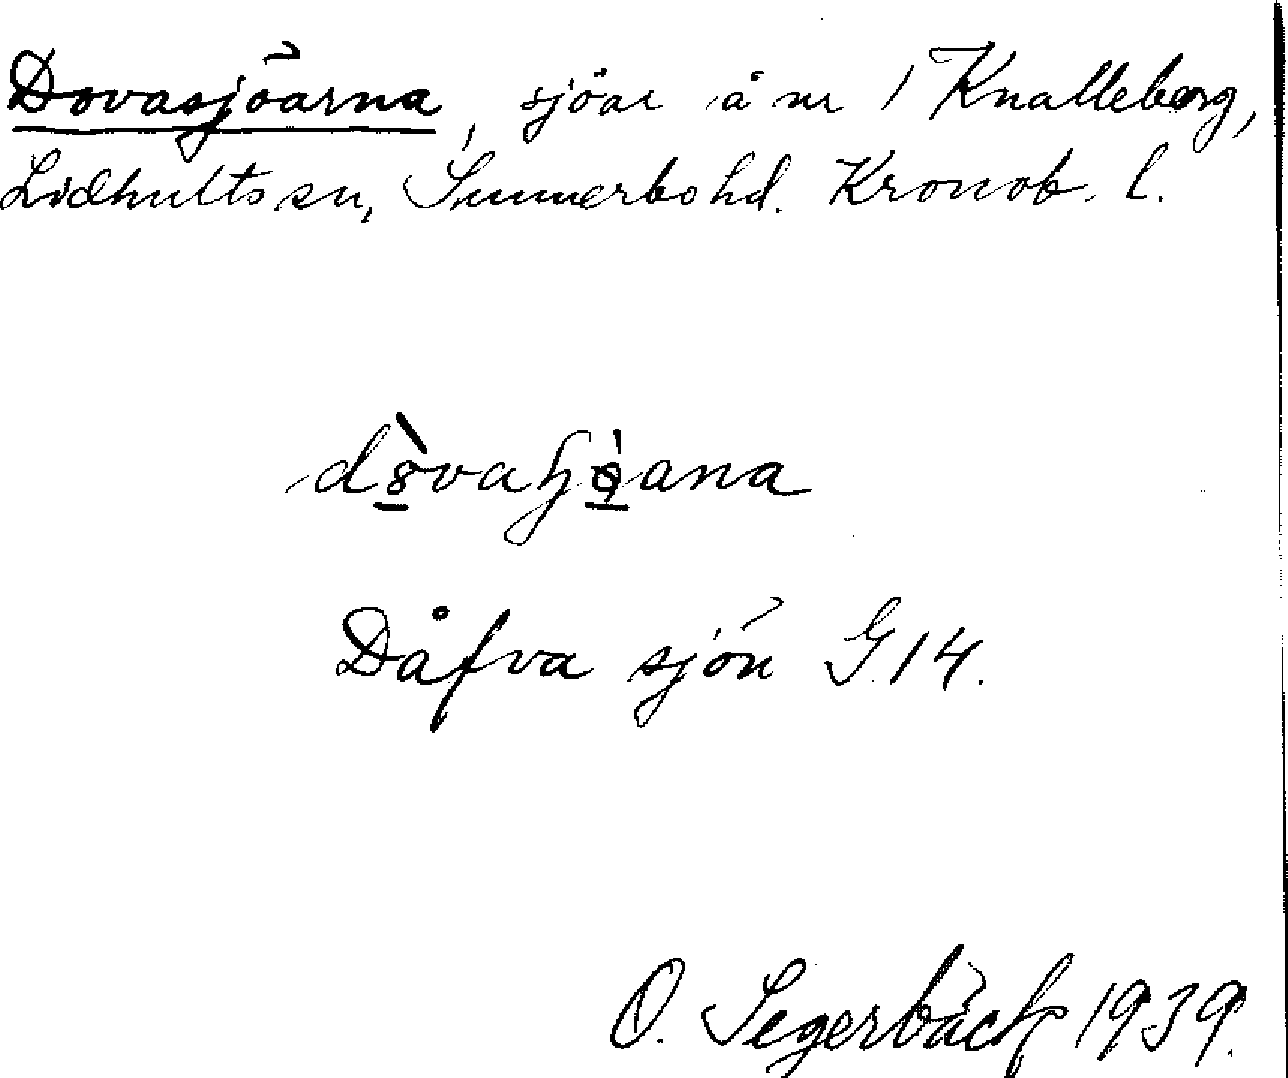 Dovasjöarna, sjöar å nr 1 Knalleberg,
Lidhults sn, Sunnerbo hd. Kronob. l.
Dåfva sjön G14.
O. Segerbäck 1939.